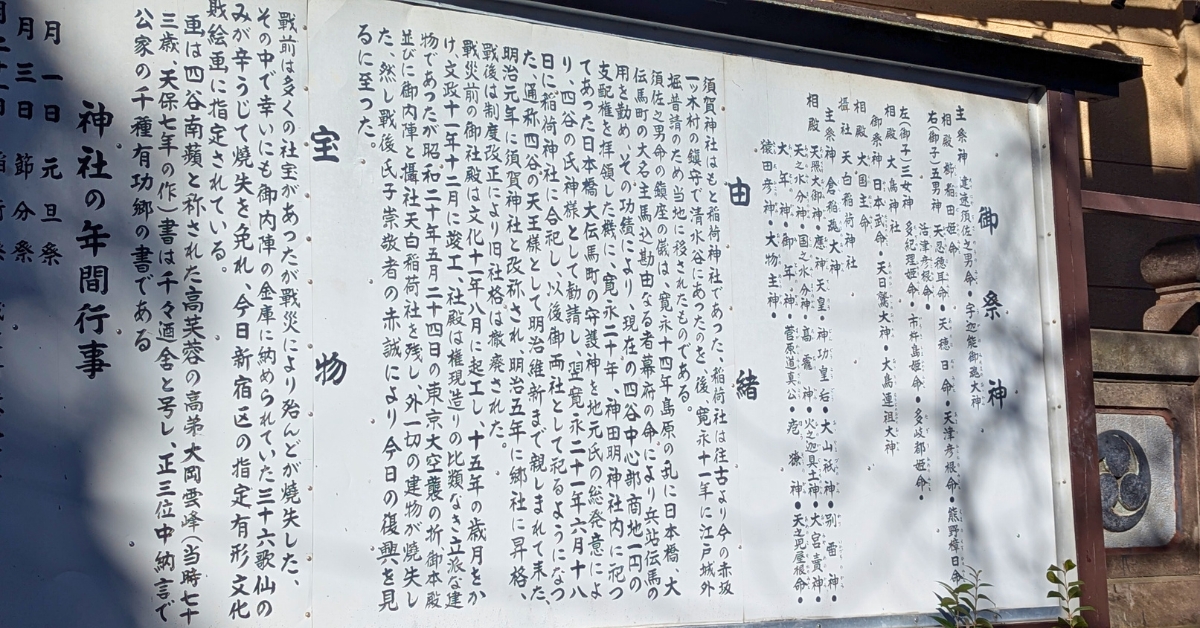 御祭神
主祭神 建速須佐之男命・宇迦能御魂大神
相殿 櫛稲田姫命
右(御子)五男神 天忍穂耳命・天穂日命・天津彦根命・熊野樟日命
活津彦根命・
左(御子)三女神 多紀理姫命・市杵島姫命・多岐都姫命・
相殿 大鳥神社
御祭神 日本武命・天日鷲大神・大鳥連祖大神
摂社 天白稲荷神社
主祭神 倉稲魂大神
相殿 天照大御神・應神天皇・神功皇后・大山祇神・別雷神・
天之水分神・国之水分神・高龗神・火之迦具土神・大宮賣神・
大年神・御年神・菅原道真公・疱瘡神・天之児屋根命・
猿田彦神・大物主神・
由緒
須賀神社はもと稲荷神社であった、稲荷社は往古より今の赤坂
一ッ木村の鎮守で清水谷にあったのを、後、寛永十一年に江戸城外
堀普請のため当地に移されたものである。
須佐之男命の鎮座の儀は、寛永十四年島原の乱に日本橋、大
伝馬町の大名主馬込勘由なる者幕府の命により兵站伝馬の
用を勤め、その功績により、現在の四谷中心部商地一円の
支配権を拝領した機に、寛永二十年、神田明神社内に祀つ
てあった日本橋大伝馬町の守護神を地元氏の総発意によ
り、四谷の氏神様として勧請し、翌寛永二十一年六月十八
日に稲荷神社に合祀し、以後御両社として祀るようになつ
た、通称四谷の天王様として明治維新まで親しまれて来た、
明治元年に須賀神社と改称され、明治五年に郷社に昇格、
戦後は制度改正により旧社格は撤廃された。
戦災前の御社殿は文化十一年八月に起工し、十五年の歳月をか
け、文政十一年十二月に竣工、社殿は権現造りの比類なき立派な建
物であつたが昭和二十年五月二十四日の東京大空襲の折御本殿
並びに御内陣と攝社天白稲荷社を残し、外一切の建物が焼失し
た、然し戦後氏子崇敬者の赤誠により今日の復興を見
るに至った。
宝物
戰前は多くの社宝があったが戰災により殆んどが焼失した、
その中で幸いにも御内陣の金庫に納められていた三十六歌仙の
みが辛うじて焼失を免れ、今日新宿区の指定有形文化
財絵画に指定されている。
画は四谷南蘋と称された高芙蓉の高弟大岡雲峰(当時七十
三歳、天保七年の作)書は千々廼舎と号し、正三位中納言で
公家の千種有功郷の書である
神社の年間行事
月一日 元旦祭
月三日 節分祭